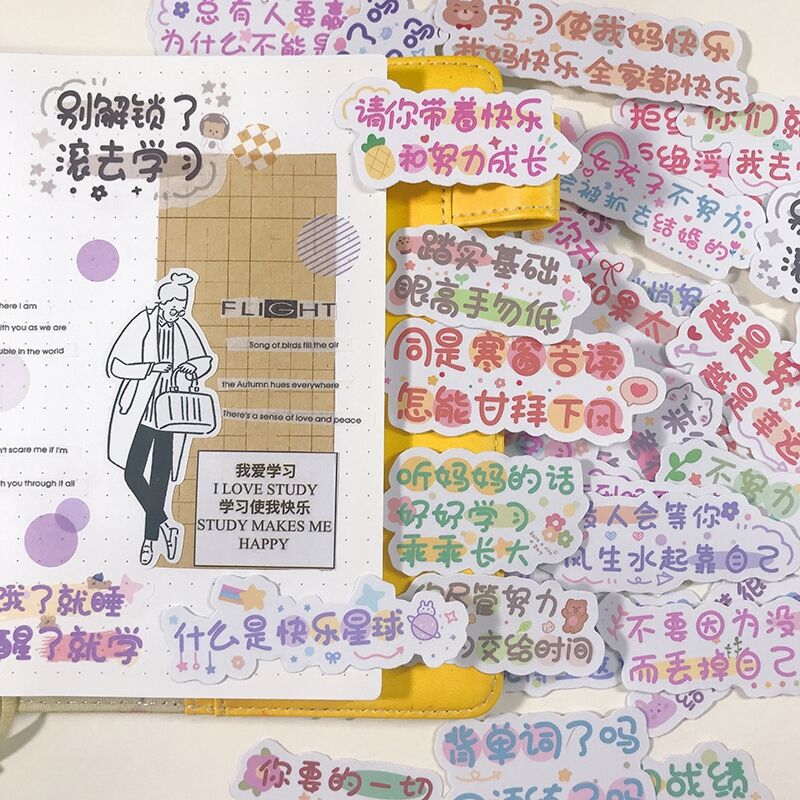 别解锁了
滚去学习
here I am
with you as we are
FLIGHT
Song of birds fill the air
the Autumn hues everywhere
There's a sense of love and peace
scare me if I'm
you through it all
我爱学习
I LOVE STUDY
学习使我快乐
STUDY MAKES ME
HAPPY
了就睡
醒了就学
什么是快乐星球
总有人要
为什么不能是
学习使我妈快乐
我妈快乐 全家都快乐
请你带着快乐
和努力成长
女孩子不努力
会被抓去结婚的
踏实基础
眼高手勿低
同是寒窗苦读
怎能甘拜下风
听妈妈的话
好好学习
乖乖长大
尽管努力
交给时间
越是
越是
不努力
人会等你
风生水起靠自己
不要因为没
而丢掉自己
背单词了吗
你要的一切
战绩